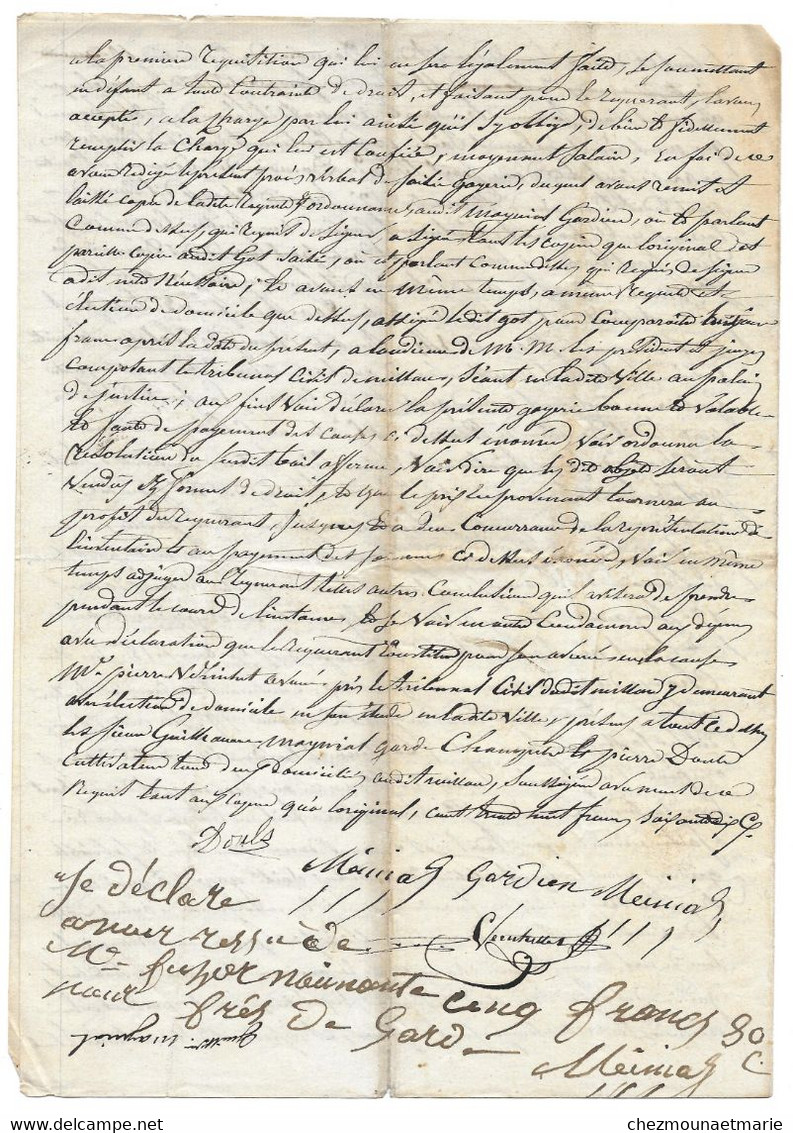 a la premiere requisition qui lui en sera légalement faite, se soumettant
a toute Contrainte de droit, et faisant pour le requerant, l'avons
accepté, a la charge par lui ainsi qu'il s'y oblige, de bien et fidellement
remplir la Charge qui lui est Confiée, moyennant Salaire, En foi de ce
avons redigé le present procès verbal de Saisie gagerie, duquel avons remis et
laissé copie de ladite Requete et ordonnance, audit maynial Gardien, en et parlant
Comme dessus, qui requis de Signer a Signé tant les copies que l'original et
pareille Copie audit Got Saisi, en et parlant Comme dessus, qui Requis de Signer
a dit
élection de domicile que dessus, assigné ledit got pour Comparaitre
francs après la date du présent, a l'audience de M. M. les président et juges
composant le tribunal Civil de millau, Séant en ladite Ville au palais
de justice; aux fins Voir déclarer la présente gagerie bonne et Valable
et faute de payement des Ci dessus énoncé Voir ordonner la
Résolution du Susdit bail afferme, Voir dire que les dits objets Seront
Vendus En forme de droit, et que le prix en provenant tournera au
profit du requerant, jusques et a due Concurrence de la représentation de
l'inventaire et au payement des Sommes Ci dessus énoncé, Voir en même
temps adjuger au Requerant telles autres Conclusions qu'il avisera de prendre
pendant le cours de l'instance, et se Voir en outre Condamner aux depens
avec déclaration que le requerant Constitue pour Son avoué en la cause
Me pierre avoué près le tribunal Civil dudit millau y demeurant
avec élection de domicile en Son étude en ladite Ville, présens a tout ce dessus
les Sieurs Guillaume maynial Garde Champetre et pierre Douls
Cultivateur tous deux Domiciliés audit millau, Soussignés avec nous de ce
Requis tant aux Copies qu'a l'original, Cout trente huit francs Soixante dix C.
Douls
Méinial Gardien Meinial
Je déclare
avoir ressu de
Mr nounante cinq francs 80
pour frés de Gard C.
maynial
Méinial
chezmounaetmarie.delcampe.net